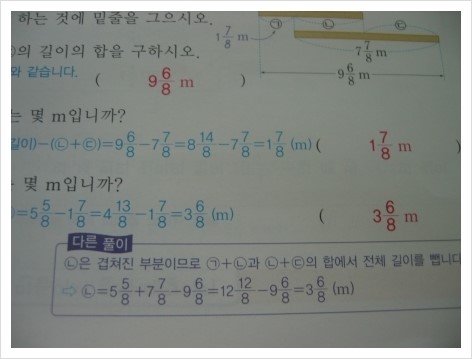 하는 것에 밑줄을 그으시오.
1 7/8 m
㉠ ㉡ ㉢
7 7/8 m
9 6/8 m
의 길이의 합을 구하시오.
와 같습니다. ( 9 6/8 m )
는 몇 m입니까?
길이)-(㉡+㉢)=9 6/8-7 7/8=8 14/8-7 7/8=1 7/8 (m) ( 1 7/8 m
몇 m입니까?
)=5 5/8-1 7/8=4 13/8-1 7/8=3 6/8 (m) ( 3 6/8 m
다른 풀이
㉡은 겹쳐진 부분이므로 ㉠+㉡과 ㉡+㉢의 합에서 전체 길이를 뺍니다
⇨ ㉡=5 5/8+7 7/8-9 6/8=12 12/8-9 6/8=3 6/8 (m)